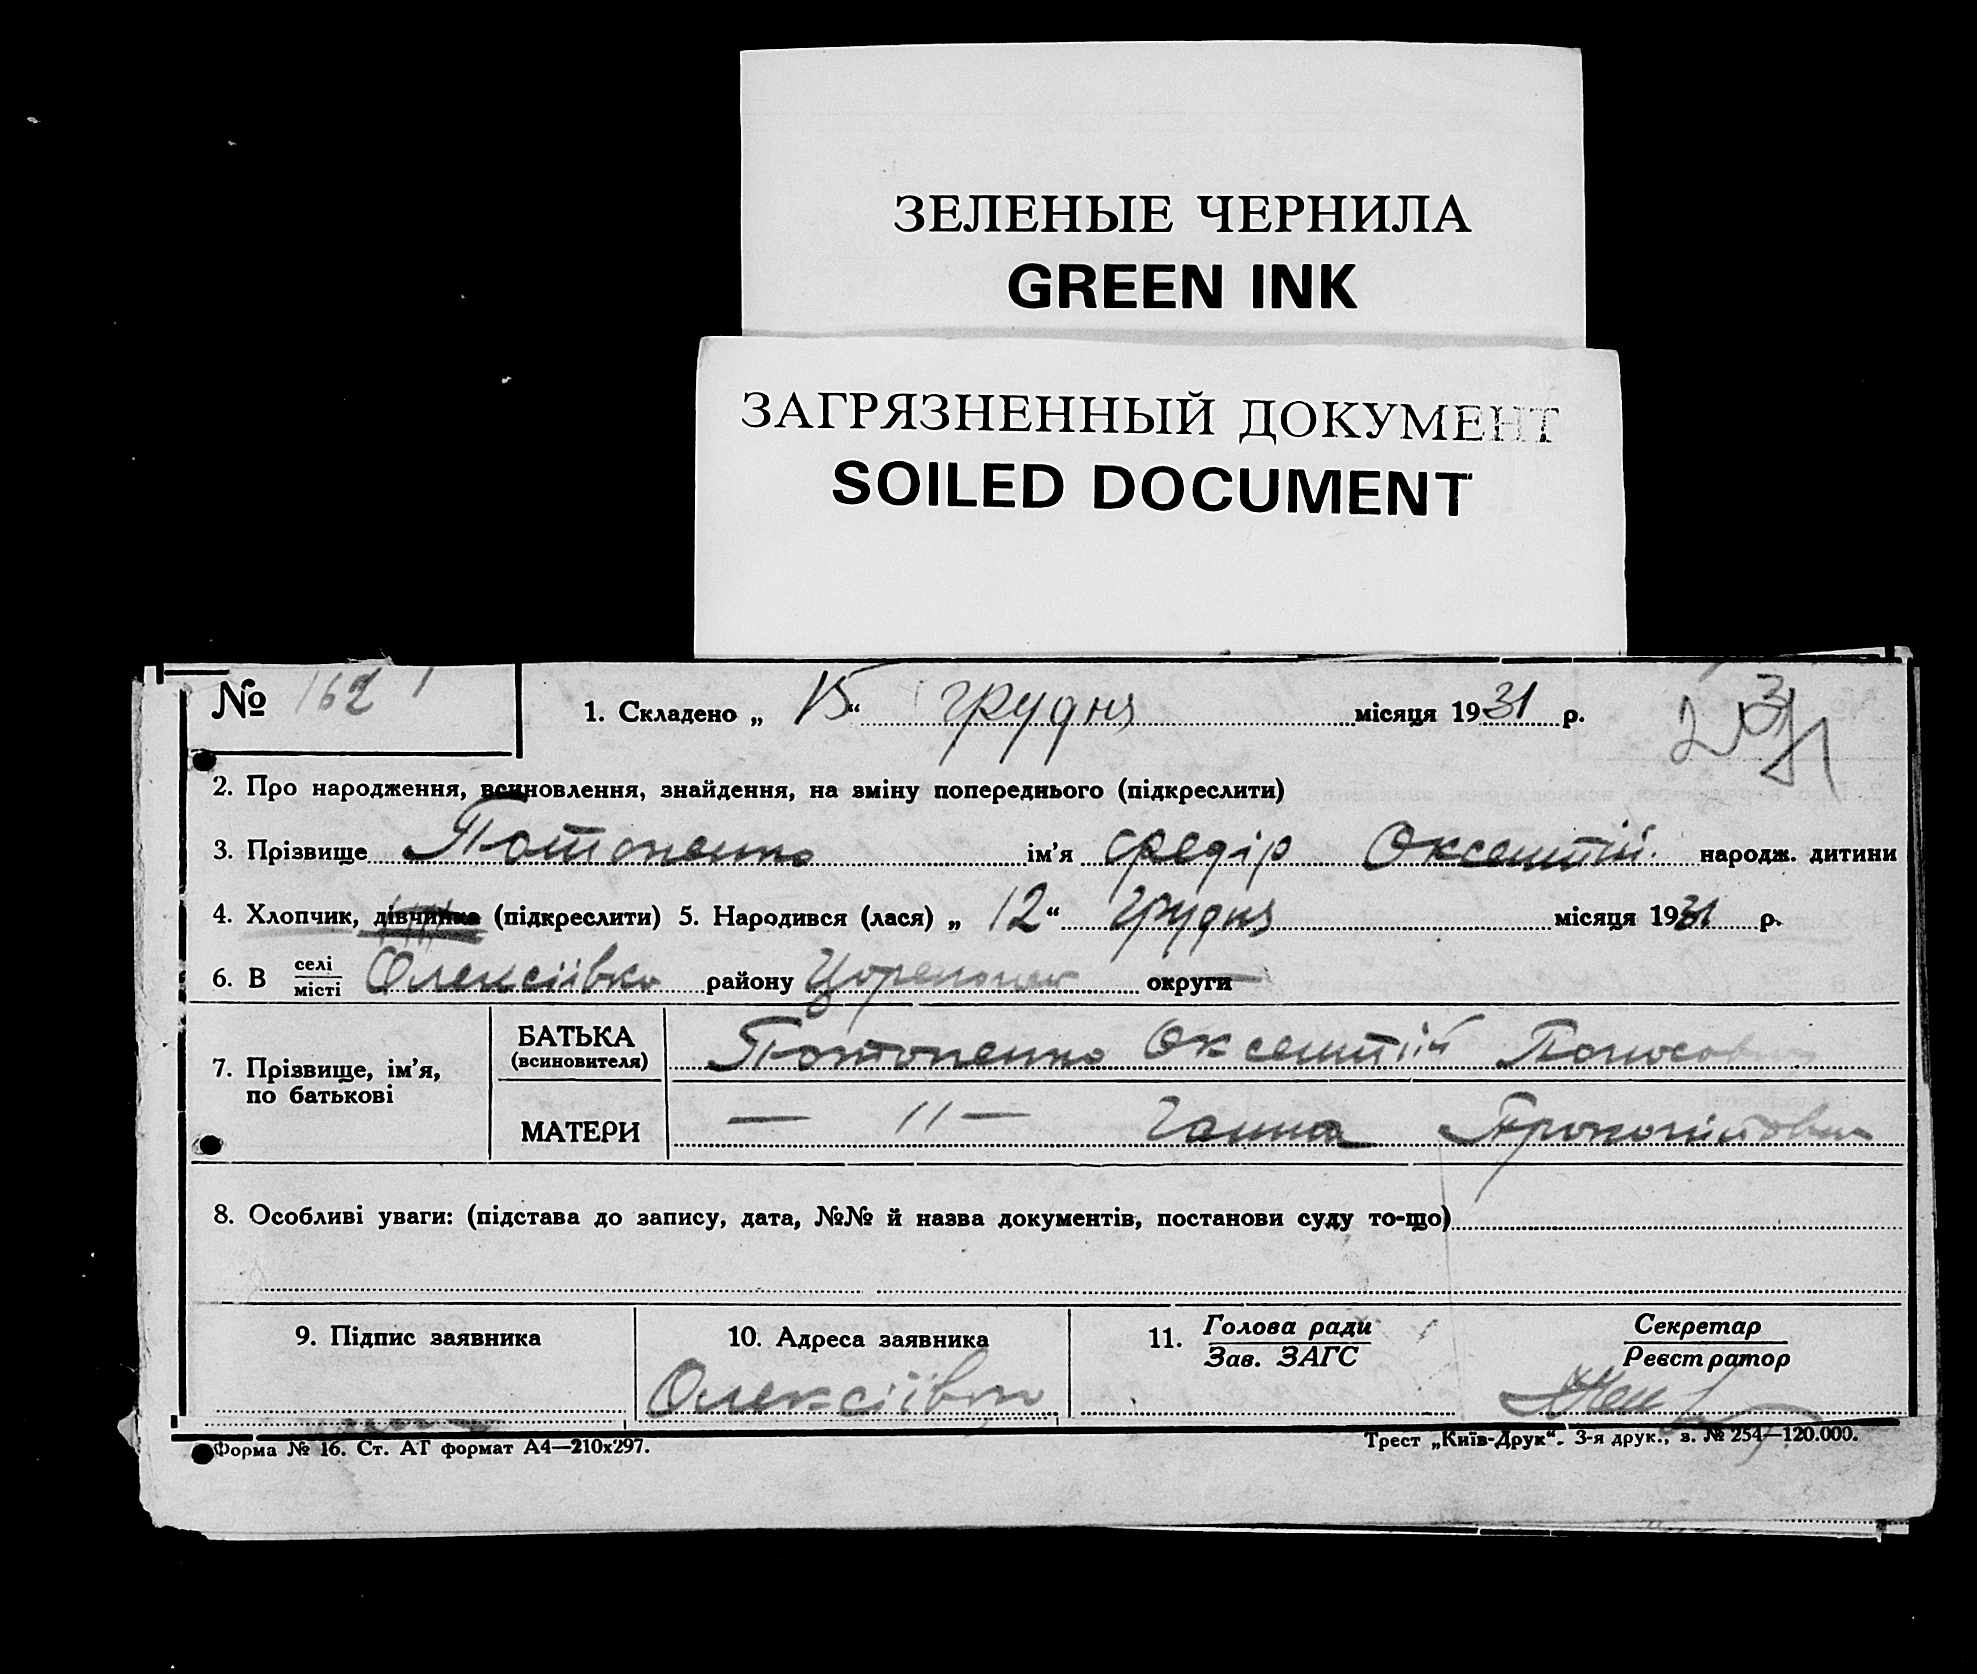 ЗЕЛЕНЫЕ ЧЕРНИЛА
GREEN INK
ЗАГРЯЗНЕННЫЙ ДОКУМЕНТ
SOILED DOCUMENT
№ 162
1. Складено „ 15 “ грудня місяця 1931 р.
2. Про народження, всиновлення, знайдення, на зміну попереднього (підкреслити)
3. Прізвище Потопенко ім'я Федір Оксентій. народж. дитини
4. Хлопчик, дівчинка (підкреслити) 5. Народився (лася) „ 12 “ грудня місяця 1931 р.
6. В селі
місті Олексіївко району округи —
7. Прізвище, ім'я,
по батькові
БАТЬКА
(всиновителя)
Потопенко Оксентій
МАТЕРИ
— 11 — Ганна
8. Особливі уваги: (підстава до запису, дата, №№ й назва документів, постанови суду то-що)
9. Підпис заявника
10. Адреса заявника
Олексіївко
11. Голова ради
Зав. ЗАГС
Секретар
Реєстратор
Форма № 16. Ст. АТ формат А4—210x297.
Трест „Київ-Друк“. 3-я друк., з. № 254—120.000.